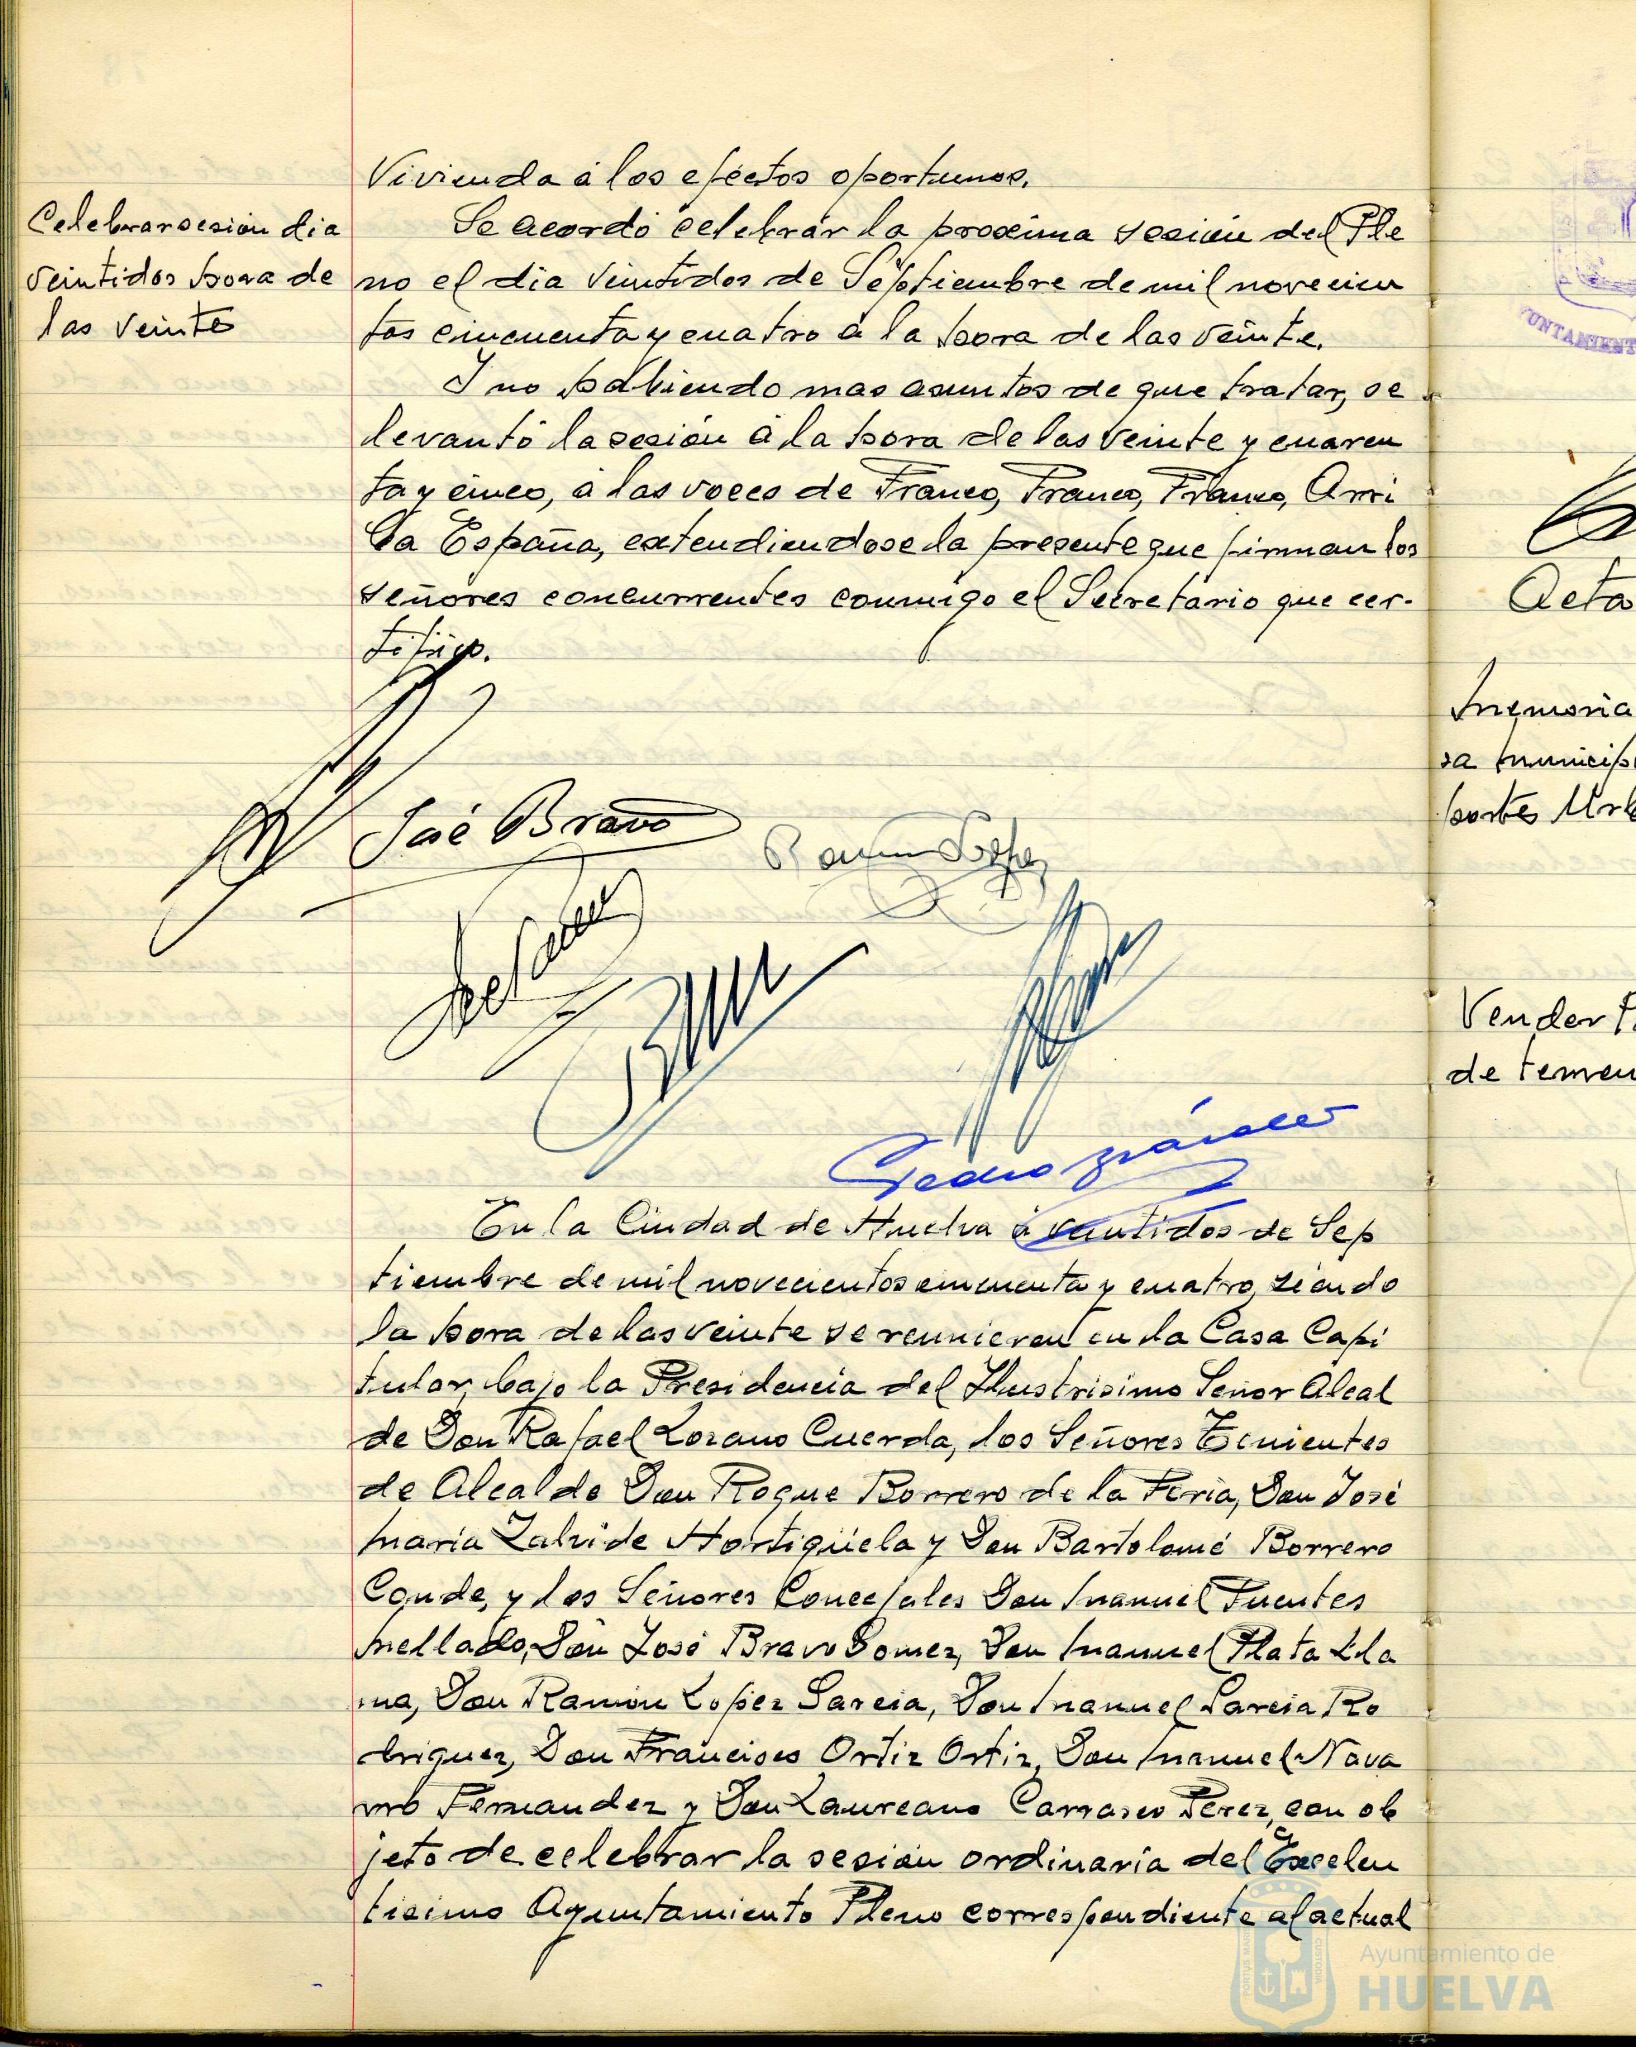 Vivienda á los eféctos oportunos.
Celebrar sesión dia
veintidos hora de
las veinte
Se acordó celebrar la proxima sesión del Ple
no el dia veintidos de Séptiembre de mil novecien
tos cincuenta y cuatro á la hora de las veinte.
Y no habiendo mas asuntos de que tratar, se
levantó la sesión á la hora de las veinte y cuaren
ta y cinco, á las voces de Franco, Franco, Franco, Arri
ba España, extendiendose la presente que firman los
señores concurrentes conmigo el Secretário que cer-
tifico.
José Bravo
Ramon Lopez
En la Ciudad de Huelva á veintidos de Sep
tiembre de mil novecientos cincuenta y cuatro, siendo
la hora de las veinte se reunieren en la Casa Capi
tular, bajo la Presidencia del Ilustrisimo Señor Alcal
de Don Rafael Lozano Cuerda, los Señores Tenientes
de Alcalde Don Roque Borrero de la Feria, Don José
Maria Zalvide Hortigüela y Don Bartolomé Borrero
Conde, y los Señores Concejales Don Manuel Fuentes
Mellado, Don José Bravo Gomez, Don Manuel Plata Lla
na, Don Ramón Lopez Garcia, Don Manuel Garcia Ro
driguez, Don Francisco Ortiz Ortiz, Don Manuel Nava
rro Fernandez y Don Laureano Carrasco Perez, con ob
jeto de celebrar la sesión ordinaria del Excelen
tisimo Ayuntamiento Pleno correspondiente al actual
UNTAMIENT
Acta
Memoria
sa municip
portes Urb
Vender P
de terren
Ayuntamiento de
HUELVA